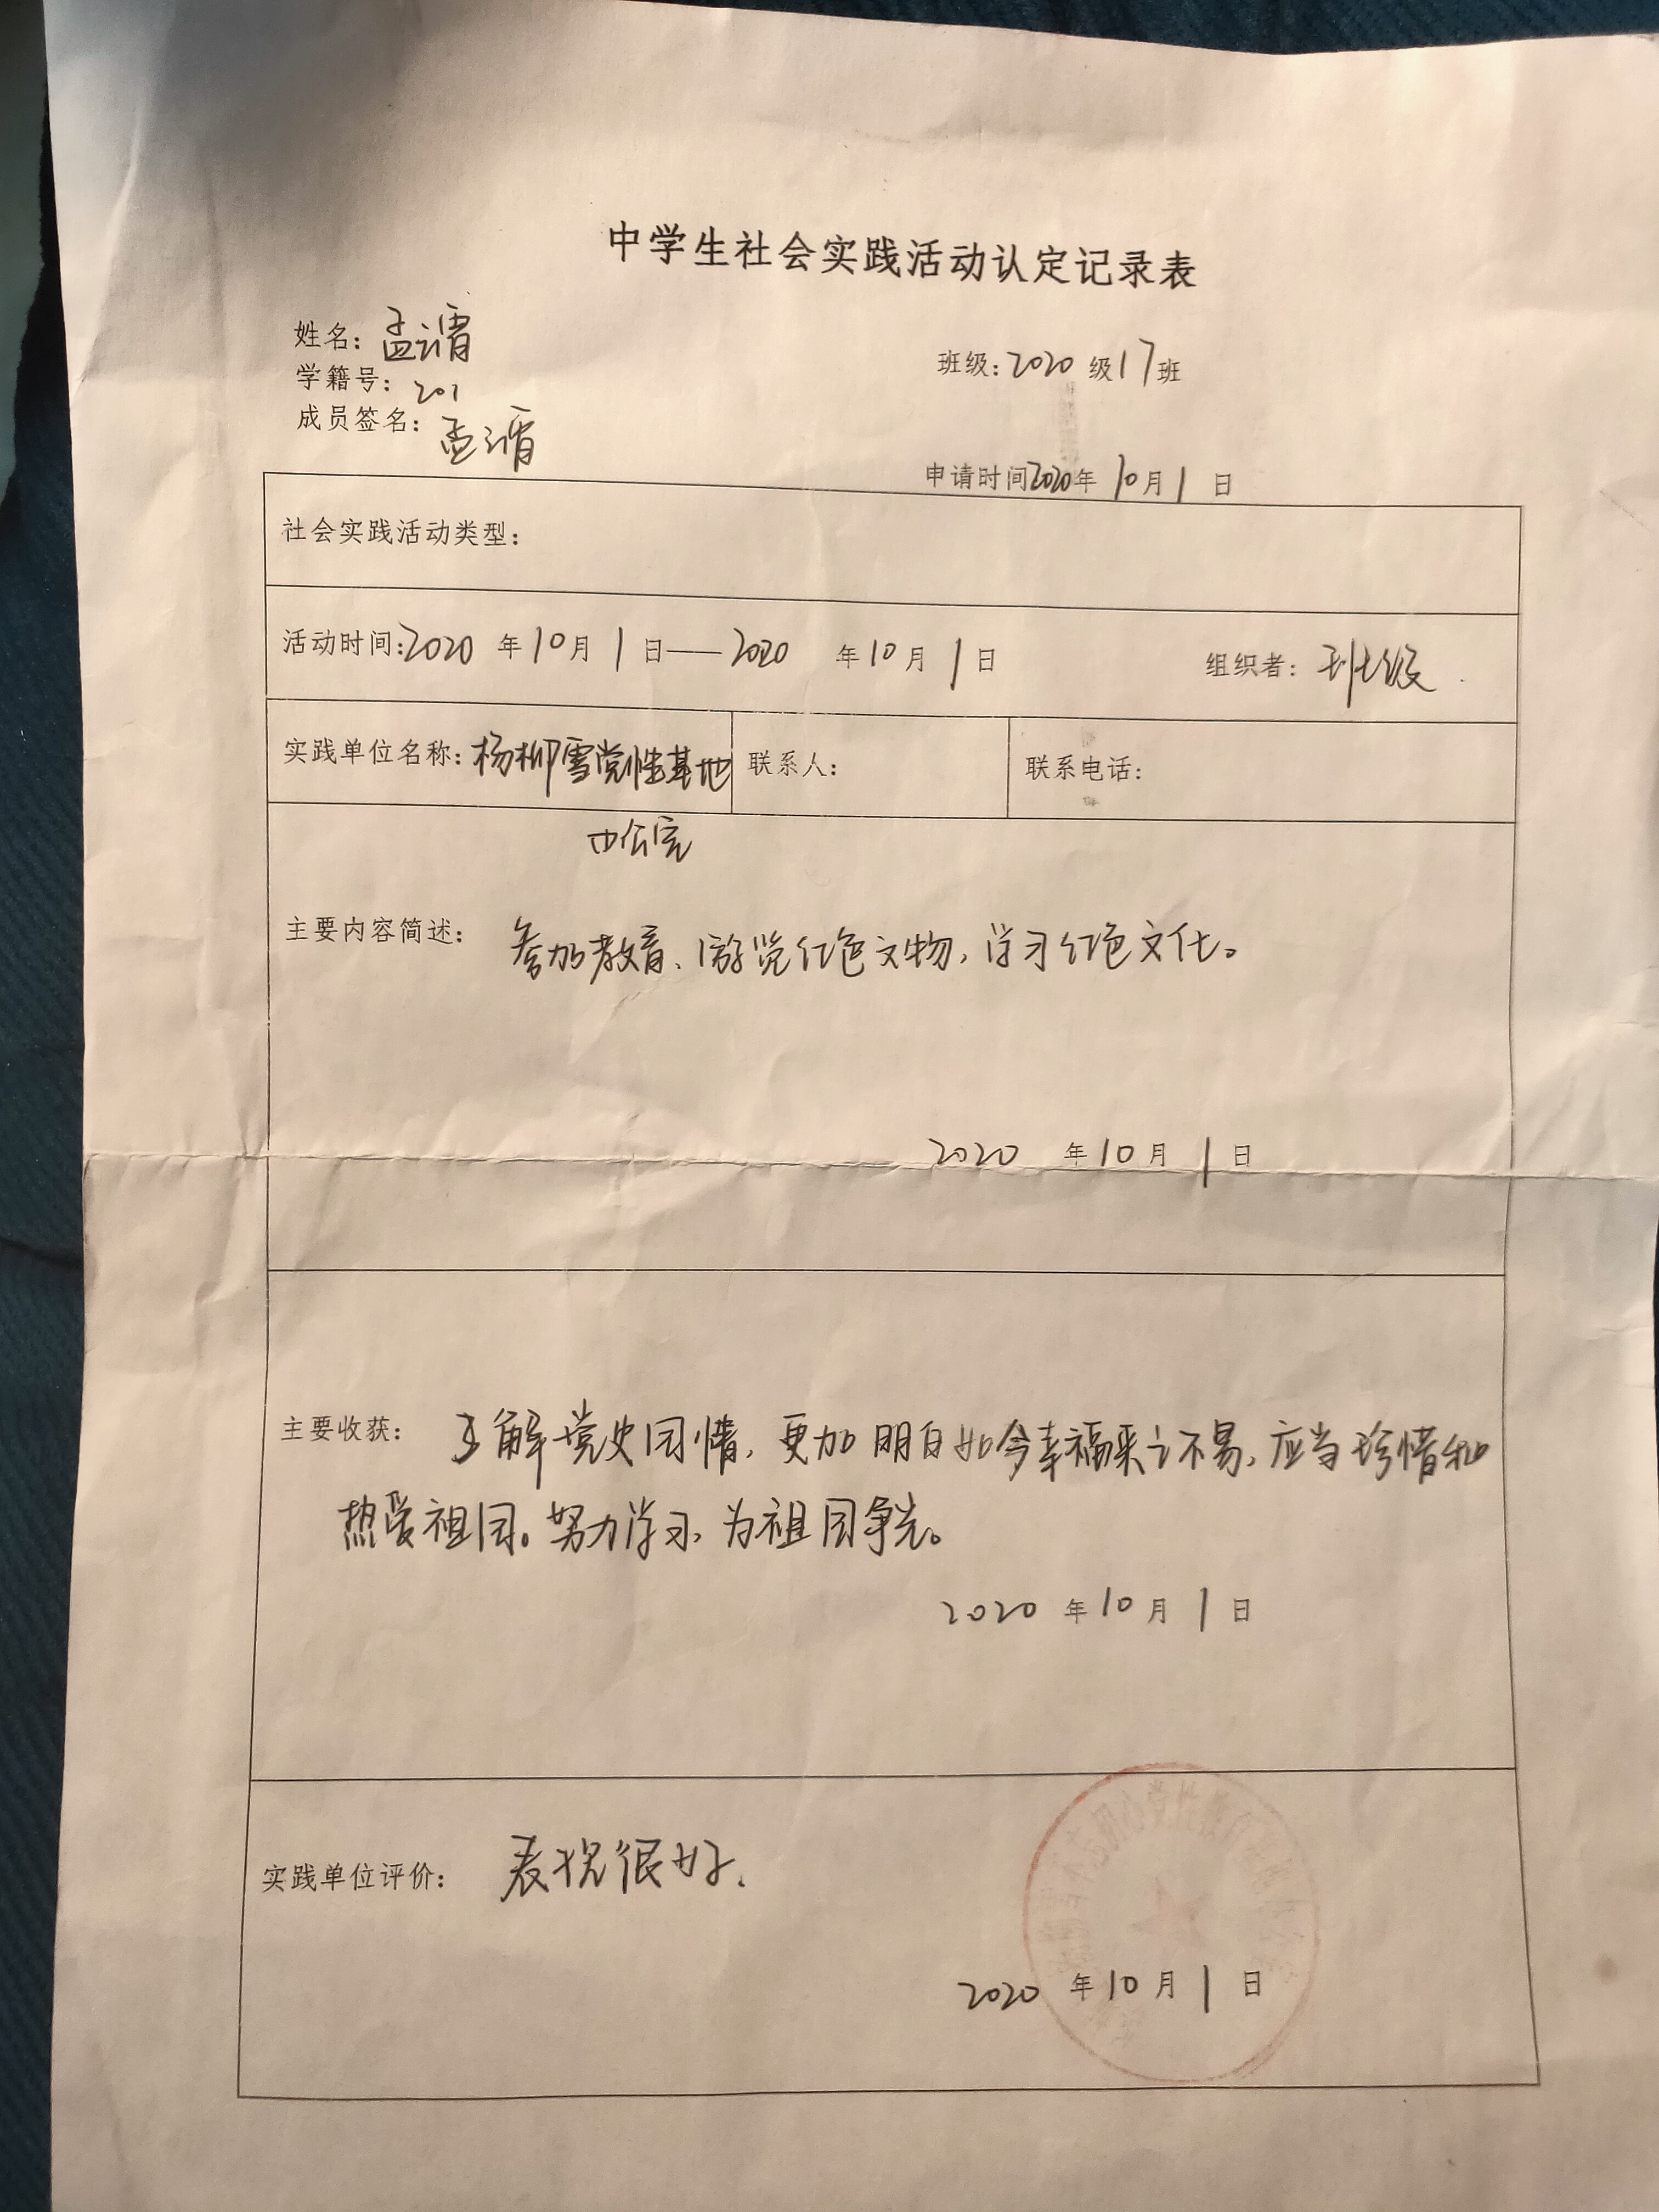 中学生社会实践活动认定记录表
姓名：孟
班级：2020 级17班
学籍号：201
成员签名：孟
申请时间2020年 10月1 日
社会实践活动类型：
活动时间：2020 年10月 1 日——2020 年10月 1日 组织者：班级
实践单位名称：杨柳雪党性基地 联系人： 联系电话：
办公室
主要内容简述： 参加教育、游览红色文物，学习红色文化。
2020 年10月 1 日
主要收获： 了解党史国情，更加明白如今幸福来之不易，应当珍惜和
热爱祖国。努力学习，为祖国争光。
2020 年10月 1 日
实践单位评价： 表现很好.
2020 年10月 1 日